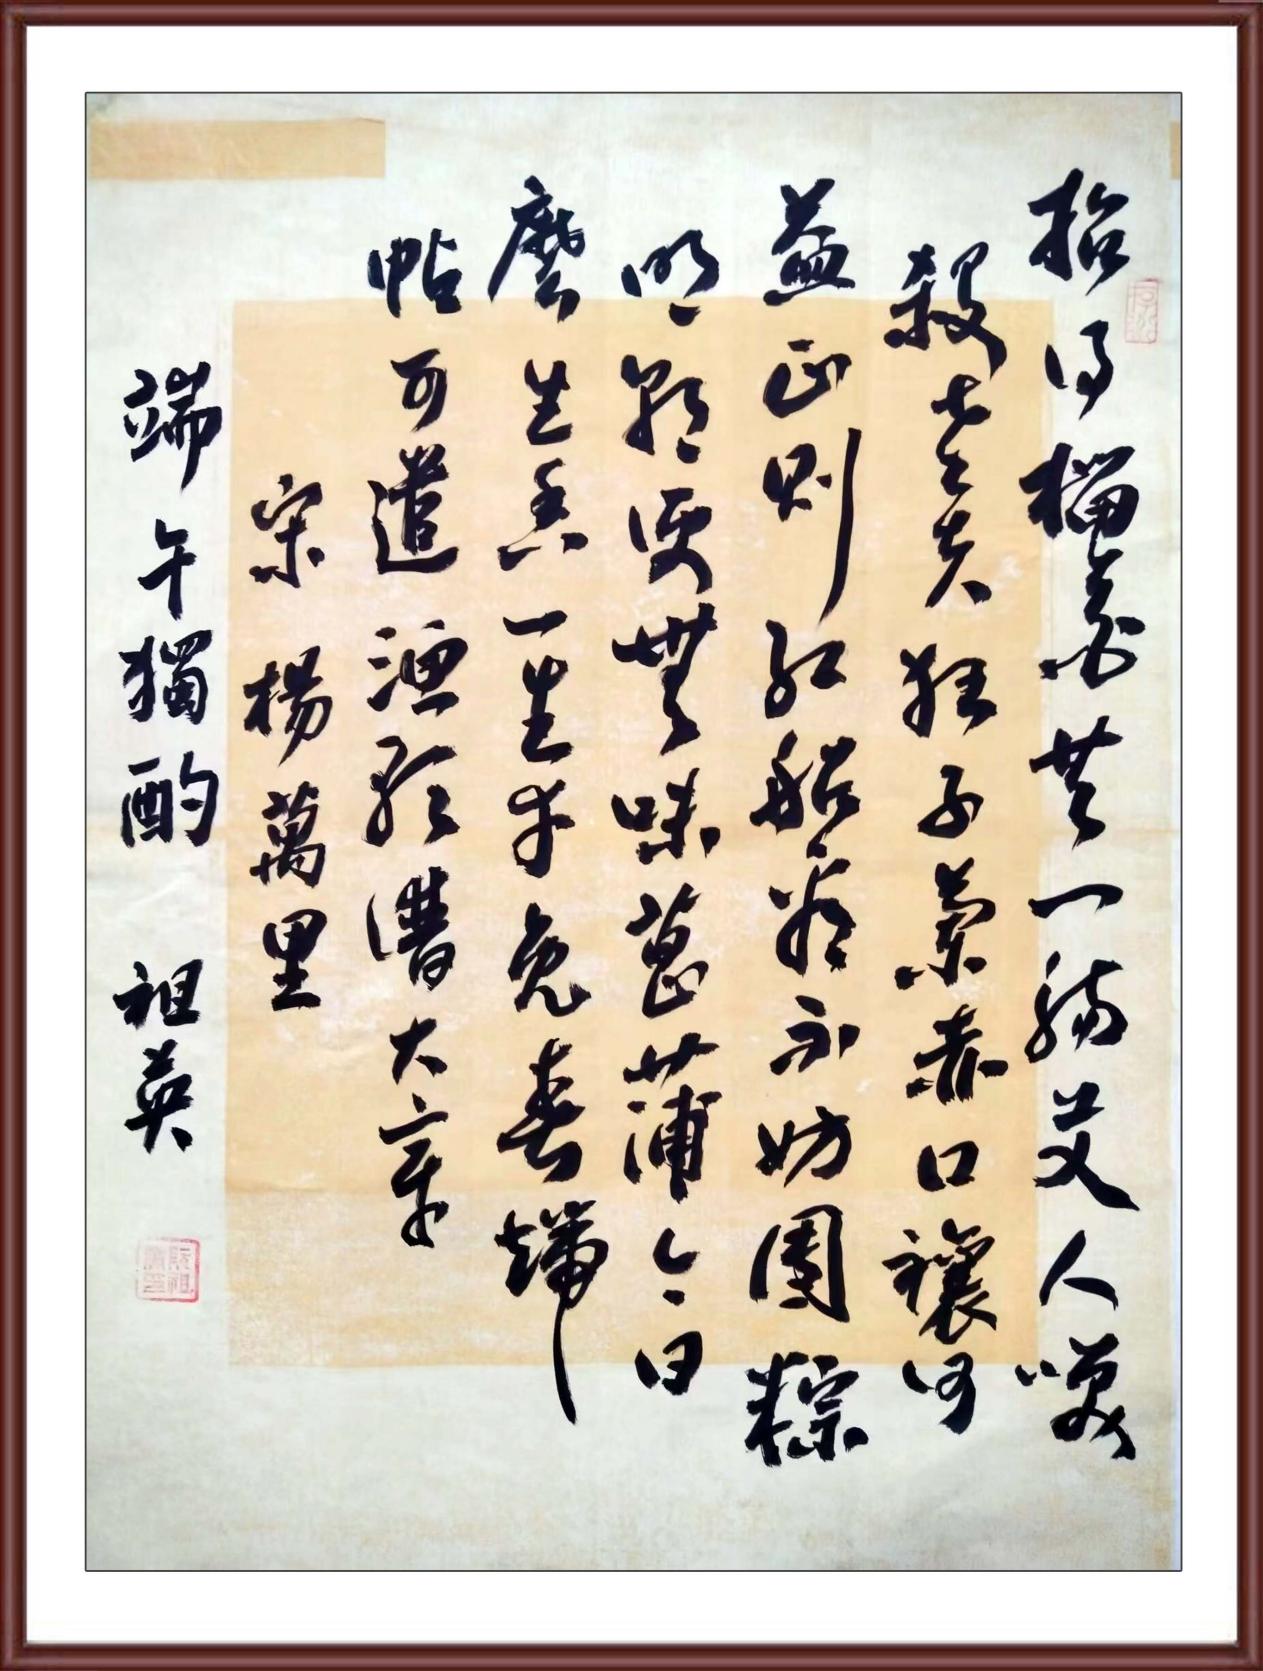 招得榴花共一觴艾人咲
殺老夫狂子蘭赤口禳何
益正則紅船看不妨團粽
明朝便無味菖蒲今日
麼生香一生幸免春端
帖可遣漁歌譜大章
宋 楊萬里
端午獨酌 祖英